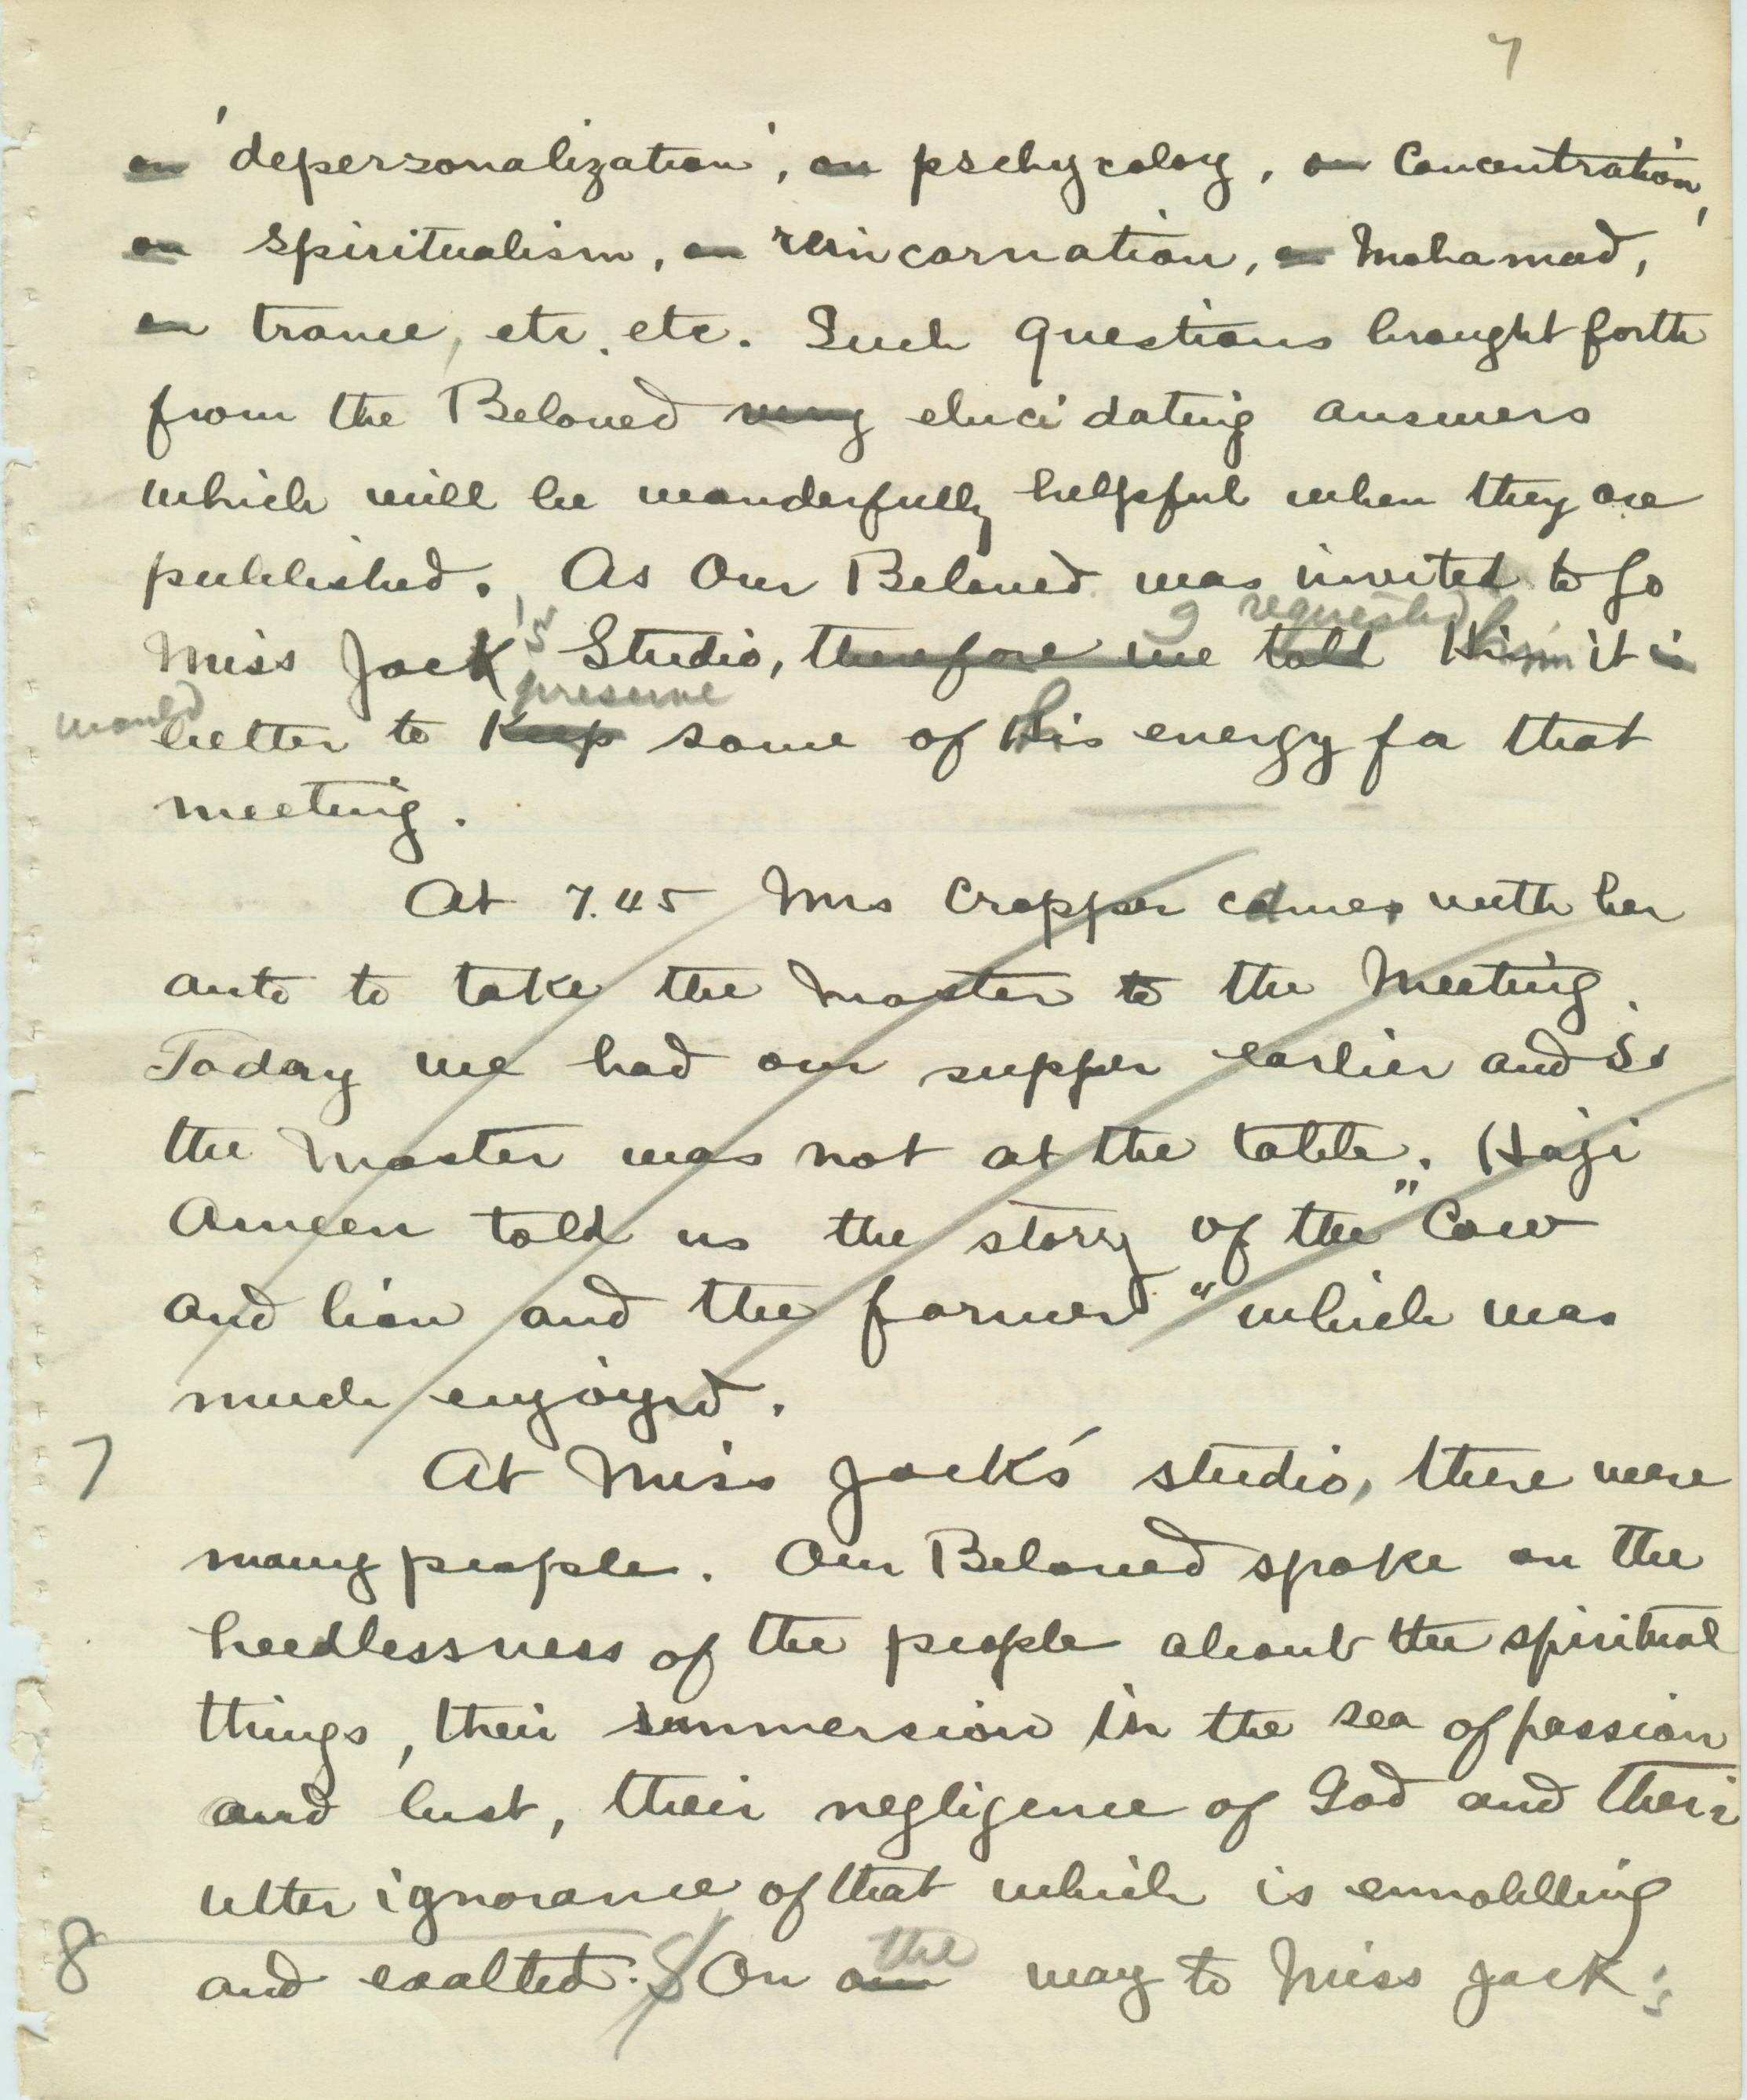 7
on 'depersonalization', on pschycology, on Concentration,
on spiritualism, on reincarnation, on Mohamad,
on trance, etc. etc. Such questions brought forth
from the Beloved very elucidating answers
which will be wonderfully helpful when they are
published. As Our Beloved was invited to go
I requested
Miss Jack's Studio, therefore we told Him it is
would preserve
better to keep some of His energy for that
meeting.
At 7.45 Mrs Cropper comes with her
auto to take the Master to the Meeting.
Today we had our supper earlier and so
the Master was not at the table. Haji
Ameen told us the story of the "Cow
and lion and the farmer" which was
much enjoyed.
7 At Miss Jack's studio, there were
many people. Our Beloved spoke on the
heedlessness of the people about the spiritual
things, their immersion in the sea of passion
and lust, their negligence of God and their
utter ignorance of that which is ennobling
the
8 and exalted. On our way to Miss Jack's